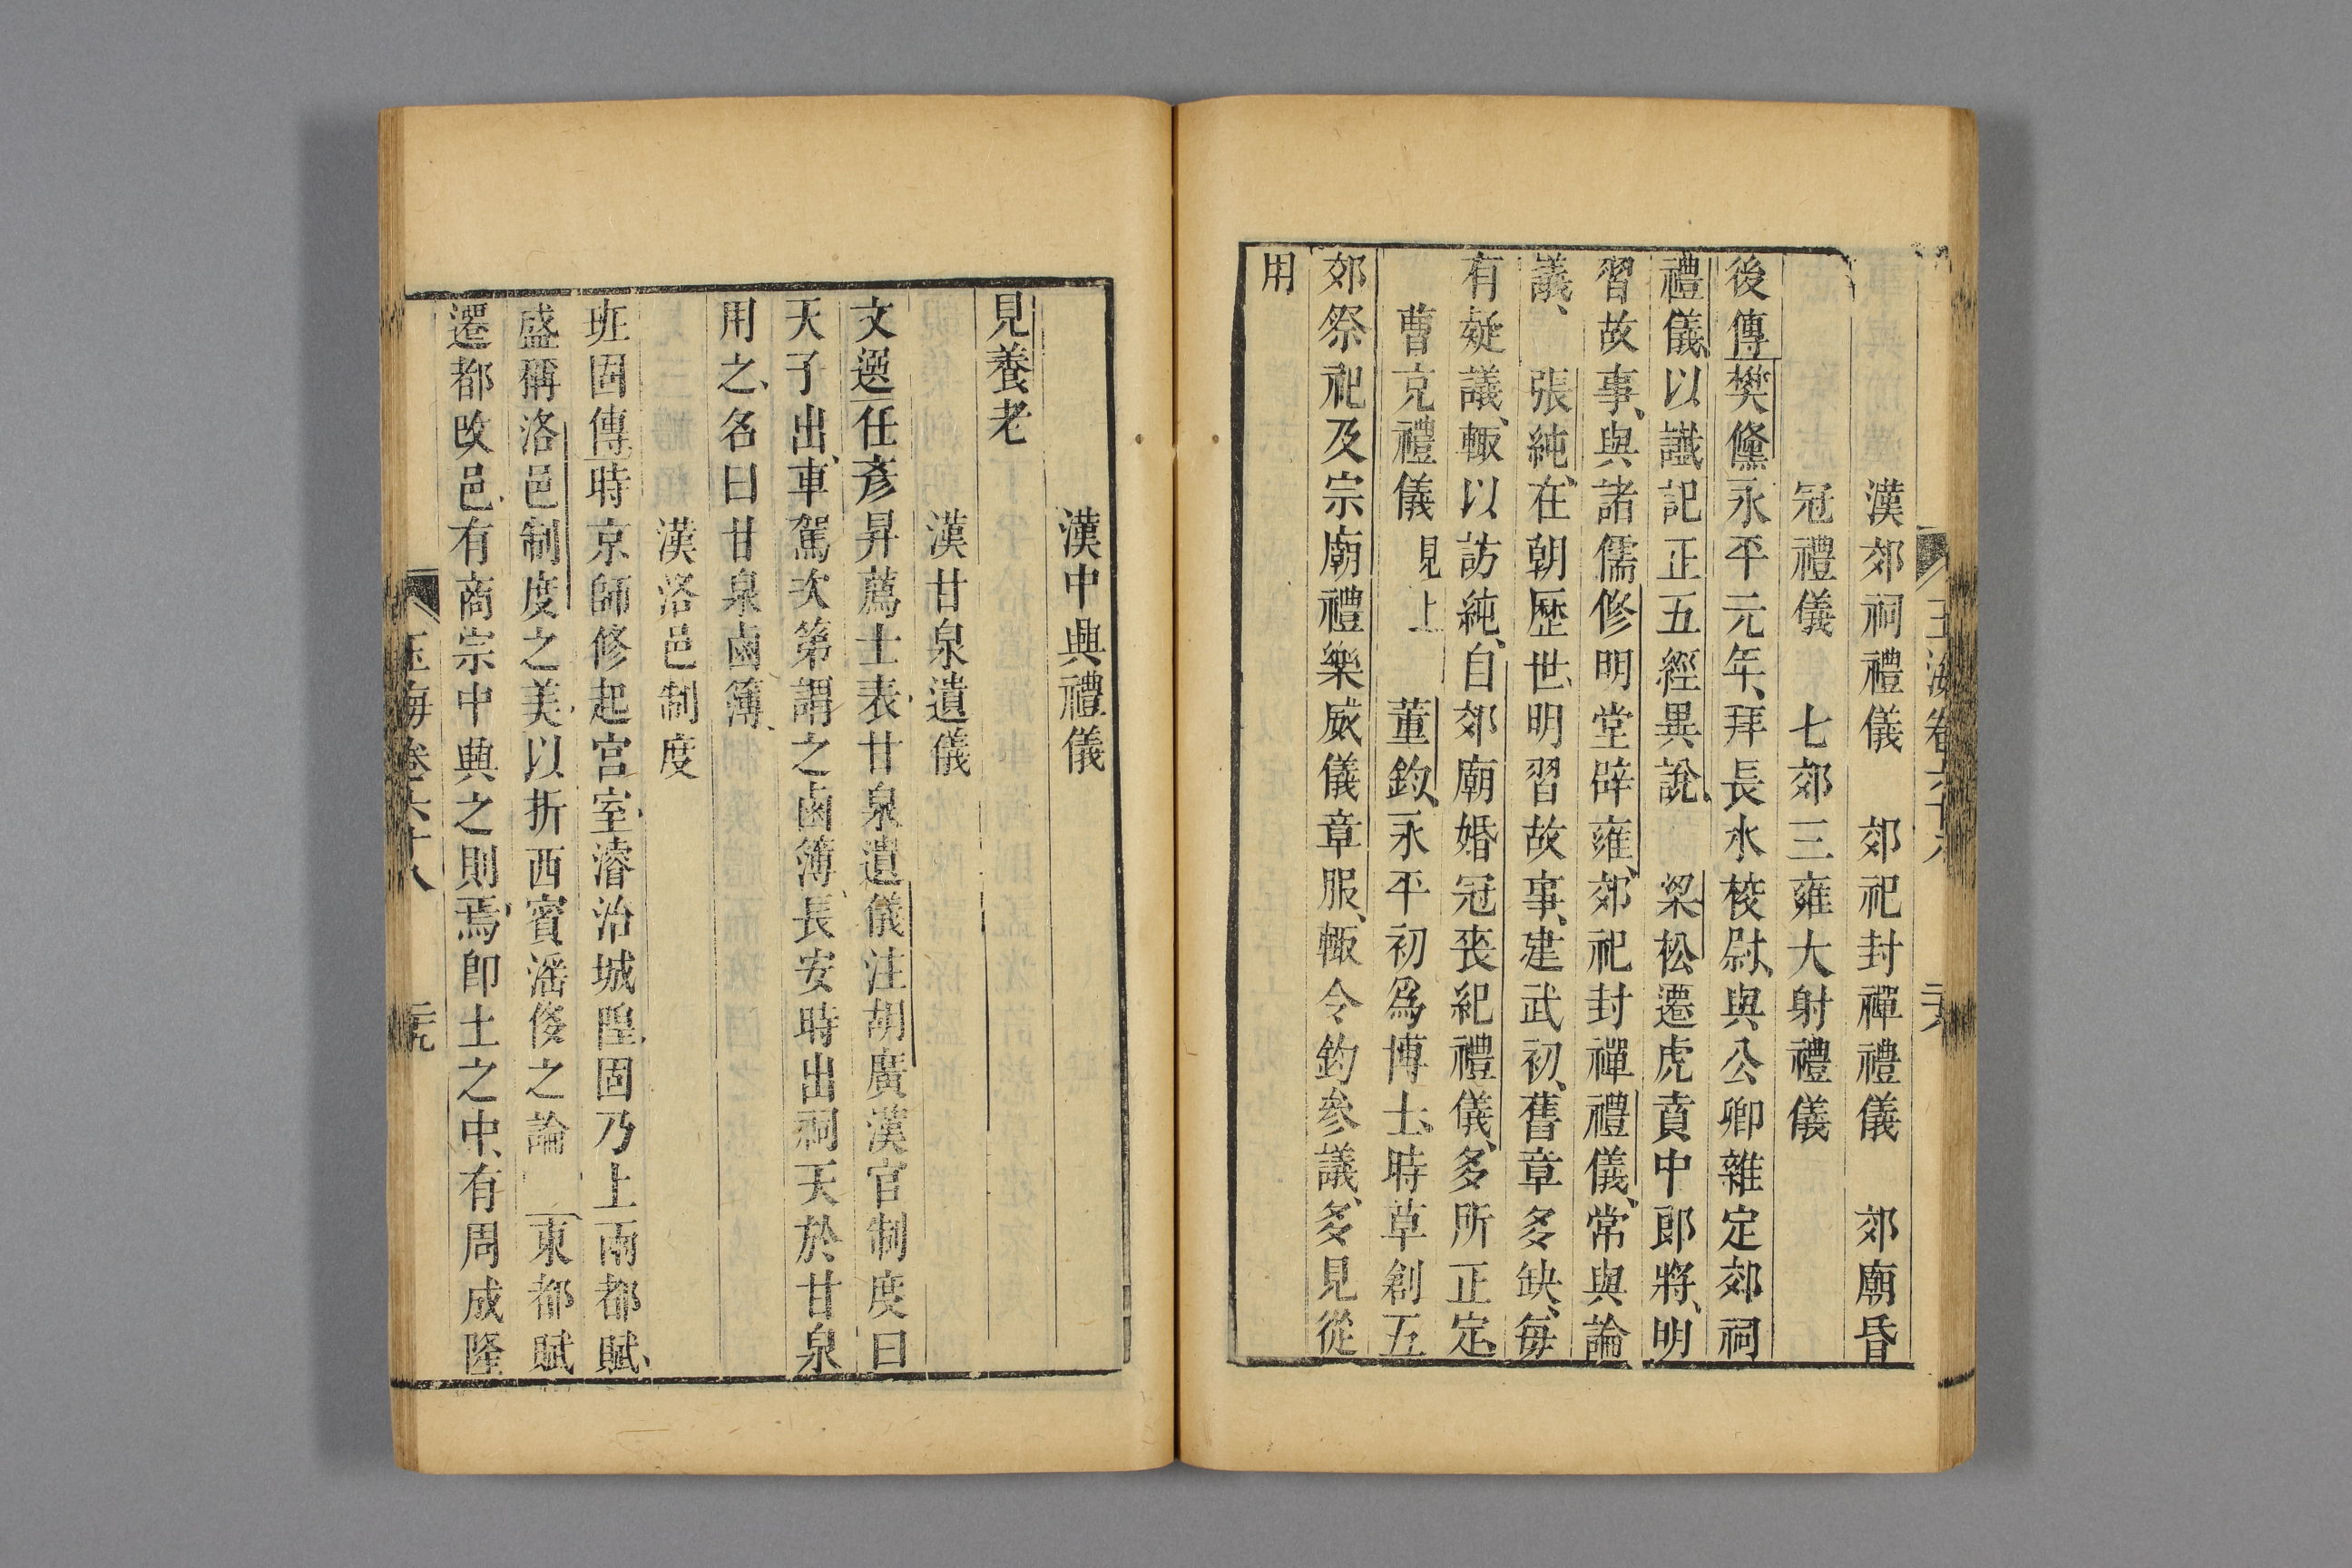 漢郊祠禮儀　郊祀封禪禮儀　郊廟昏
冠禮儀　七郊三雍大射禮儀
後傳樊儵永平元年、拜長水校尉、與公卿雜定郊祠
禮儀、以讖記正五經異說、　梁松遷虎賁中郎將、明
習故事、與諸儒修明堂辟雍、郊祀封禪禮儀、常與論
議、　張純、在朝歷世、明習故事、建武初、舊章多缺、每
有疑議、輙以訪純、自郊廟婚冠喪紀禮儀、多所正定、
曹充禮儀見上　董鈞、永平初爲博士、時草創五
郊祭祀及宗廟禮樂威儀章服、輙令鈞參議、多見從
用
漢中興禮儀
見養老
漢甘泉遺儀
文選任彥昇薦士表、甘泉遺儀注胡廣漢官制度曰
天子出、車駕次第謂之鹵簿、長安時出祠天於甘泉
用之、名曰甘泉鹵簿、
漢洛邑制度
班固傳時京師修起宮室、濬治城隍、固乃上兩都賦、
盛稱洛邑制度之美、以折西賓滛侈之論　東都賦
遷都改邑、有商宗中興之則焉、卽土之中、有周成隆
玉海卷六十八　二九